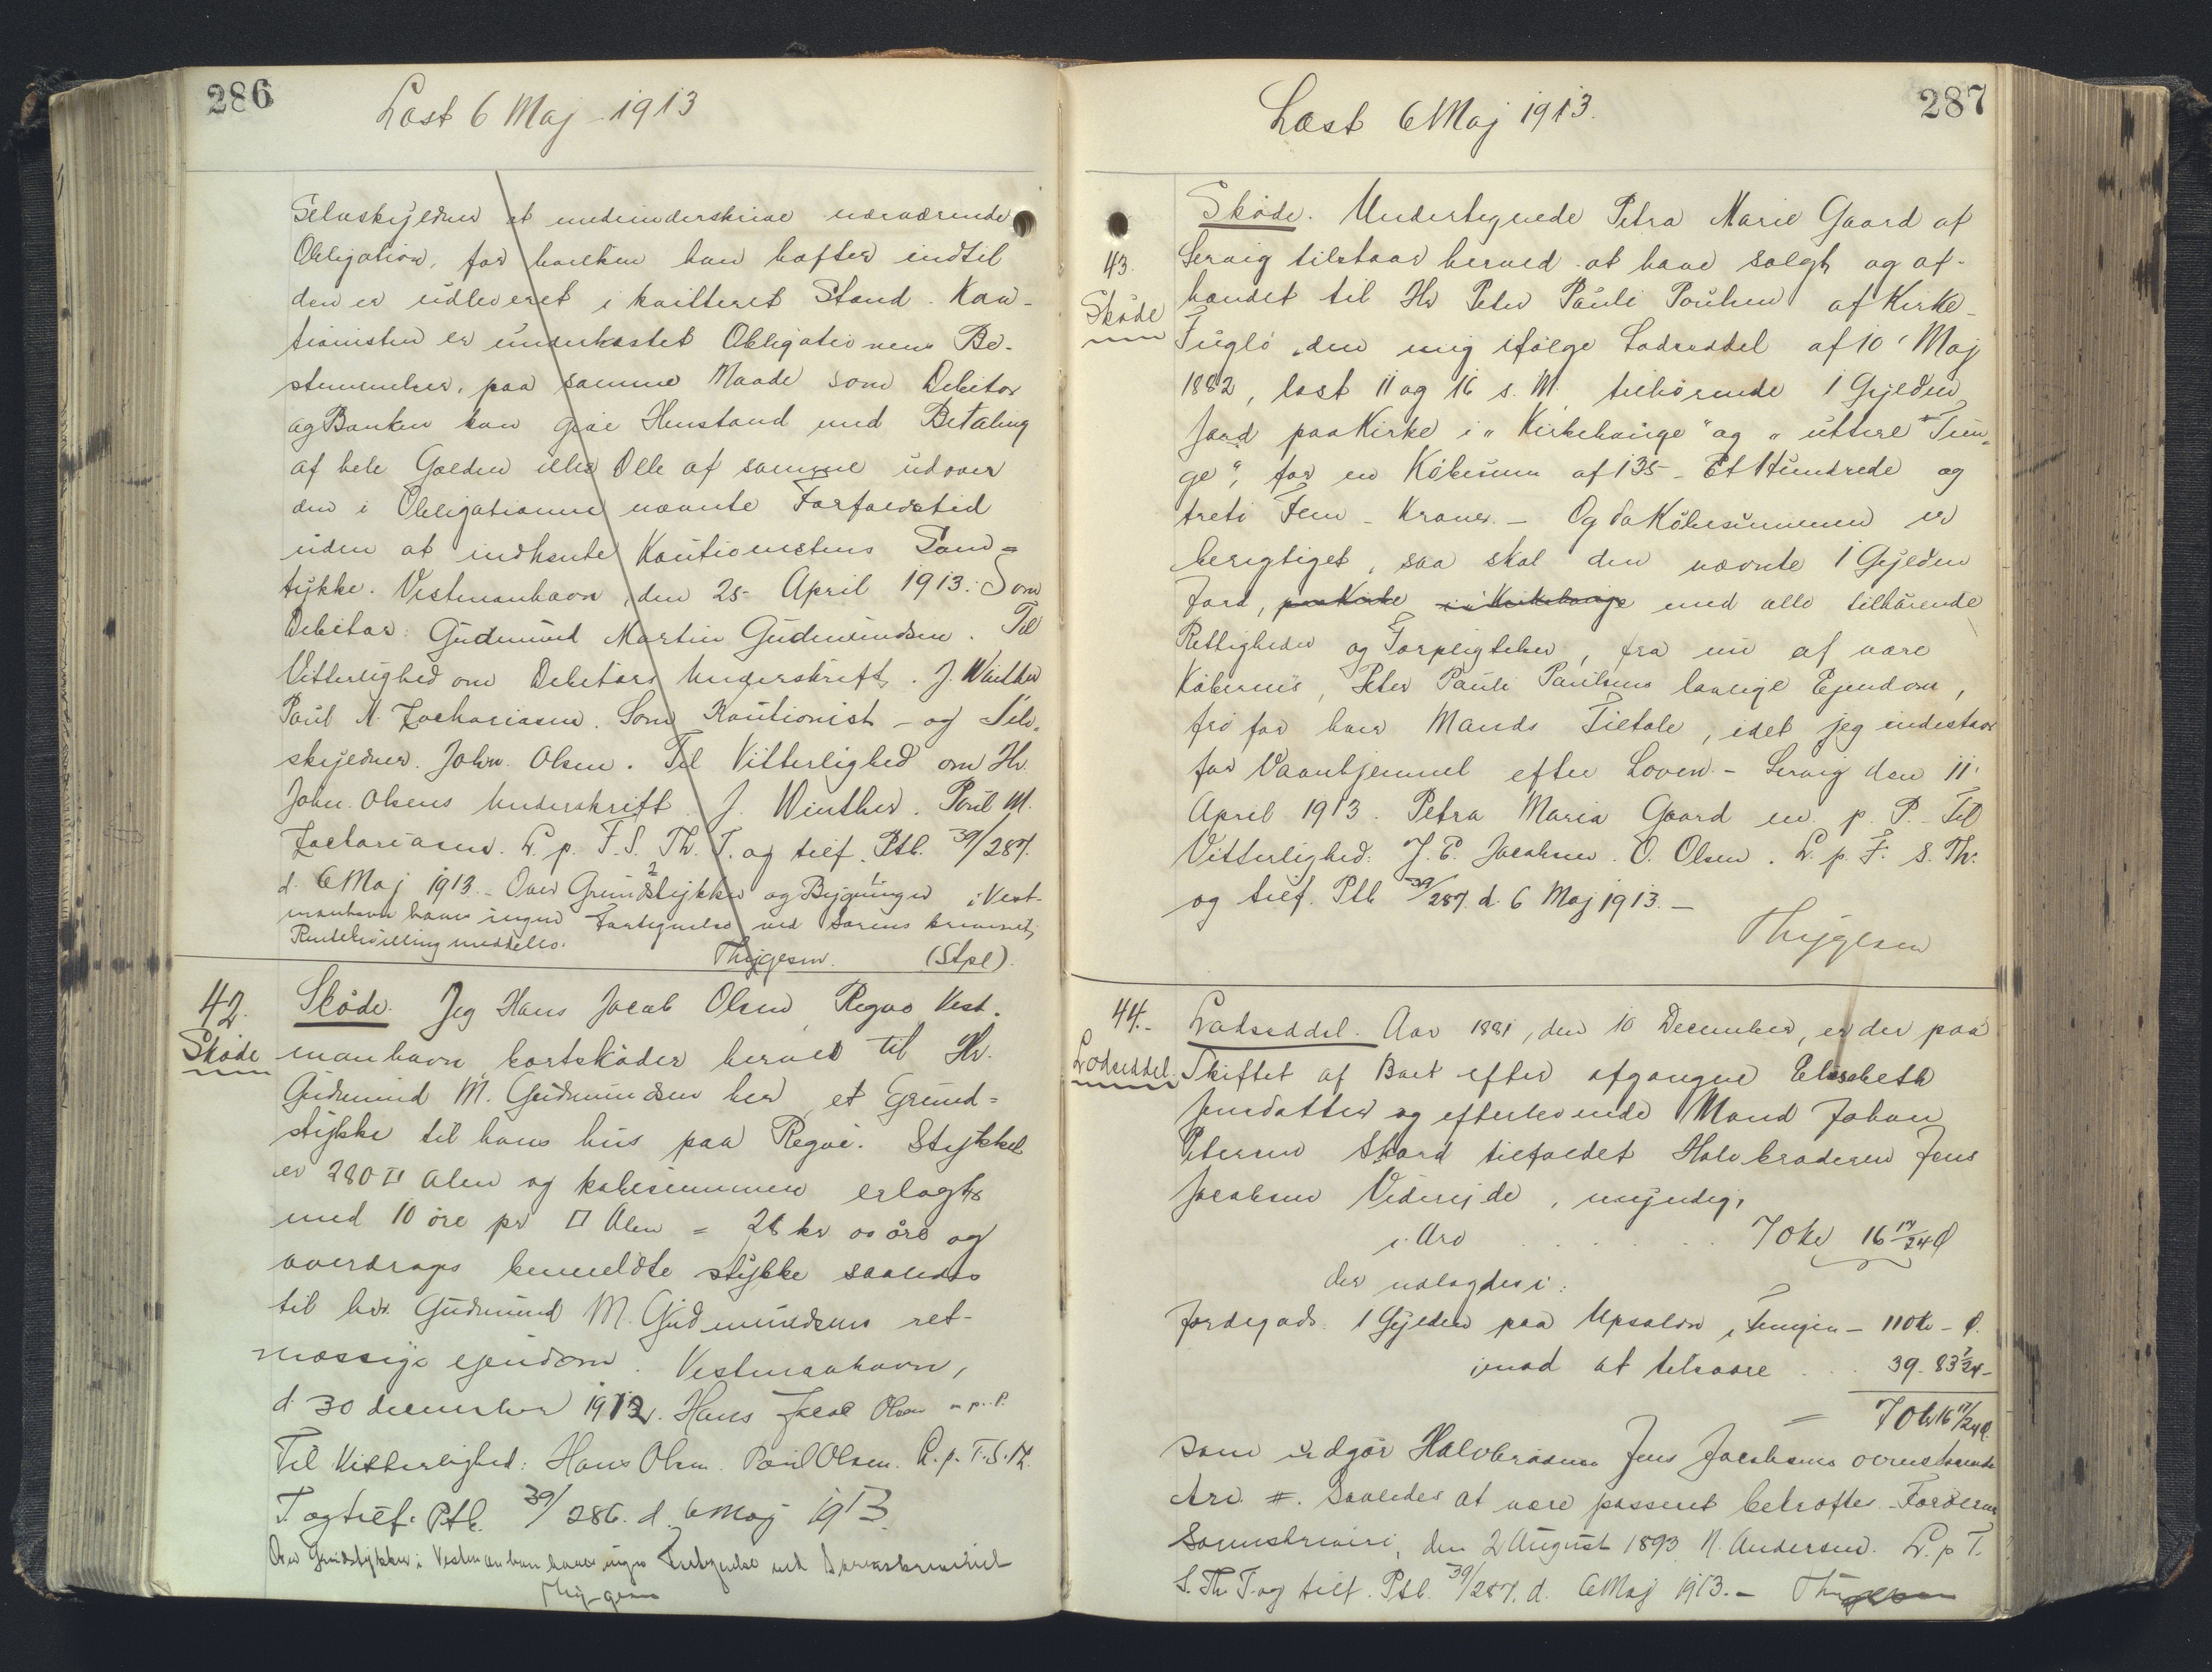 286
Læst 6 Maj 1913
Selvskyldner at medunderskrive nærværende
Obligation, for hvilken han hæfter indtil
den er udleveret i kvitteret Stand. Kau-
tionisten er underkastet Obligationens Be-
stemmelser, paa samme Maade som Debitor
og Banken kan give Henstand med Betaling
af hele Gælden eller Dele af samme udover
den i Obligationen nævnte Forfaldstid
uden at indhente Kautionistens Sam=
tykke. Vestmanhavn, den 25 April 1913. Som
Debitor: Gudmund Martin Gudmundsen. Til
Vitterlighed om Debitors Underskrift. J. Winther
Poul M. Zachariasen. Som Kautionist - og Selv-
skyldner. John. Olsen. Til Vitterlighed om Hr.
John. Olsens Underskrift. J. Winther. Poul M.
Zachariasen. L. p. F. S. Th. T. og tilf. Ptb. 39/287.
d. 6 Maj 1913. - Over Grundstykker og Bygninger i Vest-
manhavn haves ingen Fortegnelse ved Sorenskriveriet,
meddeles.
Thygesen. (Stpl).
42.
Skøde
Skøde. Jeg Hans Jacob Olsen, Regve Vest-
manhavn, bortskøder herved til Hr.
Gudmund M. Gudmundsen her, et Grund=
stykke til hans hus paa Regve. Stykket
er 280 □ Alen og købesummen erlagt
med 10 øre pr □ Alen = 28 kr 00 øre og
overdrages bemeldte stykke saaledes
til hr. Gudmund M. Gudmundsens ret-
mæssige ejendom. Vestmanhavn,
d. 30 december 1912. Hans Jacob Olsen m. p. P.
Til Vitterlighed: Hans Olsen. Poul Olsen. L. p. F. S. Th.
T. og tilf. Ptb. 39/286. d. 6 Maj 1913.
Over Grundstykker i Vestmanhavn haves ingen Fortegnelse ved Sorenskriveriet
Thygesen
287
Læst 6 Maj 1913.
43.
Skøde
Skøde. Undertegnede Petra Marie Gaard af
Servig tilstaar herved at have solgt og af-
hændet til Hr Peter Pauli Poulsen af Kirke-
Fuglø, den mig ifølge Lodseddel af 10' Maj
1882, læst 11 og 16 s. M. tilhørende 1 Gylden
Jord paa Kirke i "Kirkehauge" og "uttere Tun-
ge", for en Købesum af 135 - Et Hundrede og
treti Fem - Kroner. - Og da Købesummen er
berigtiget, saa skal den nævnte 1 Gylden
Jord, paa Kirke i "Kirkehauge med alle tilhørende
Rettigheder og Forpligtelser, fra nu af være
Køberens, Peter Pauli Poulsens lovlige Ejendom,
fri for hver Mands Tiltale, idet jeg indestaar
for Vanhjemmel efter Loven. - Servig den 11'
April 1913. Petra Maria Gaard m. p. P. - Til
Vitterlighed: J. P. Jacobsen. O. Olsen. L. p. F. S. Th.
og tilf. Ptb 39/287. d. 6 Maj 1913. -
Thygesen
44.-
Lodseddel.
Lodseddel. Aar 1881, den 10 December, er der paa
Skiftet af Boet efter afgangne Elisabeth
Jensdatter og efterlevende Mand Johan
Petersen Skard tilfaldet Halvbroderen Jens
Jacobsen Viderejde, umyndig,
i Arv . . . . . . . 70 Kr 16 17/24 Ø
der udlagdes i:
Jordegods 1 Gylden paa Upsalen, - 110 Kr - Ø.
imod at tilsvare . . . 39 - 83 7/24 -
= 70 Kr 16 17/24 Ø.
som udgør Halvbroderen Jens Jacobsens ovenstaaende
Arv #. Saaledes at være passeret bekræftes. Færøernes
Sorenskriveri, den 2 August 1893 N. Andersen. L. p. F.
S. Th. T. og tilf. Ptb. 39/287. d. 6 Maj 1913. - Thygesen